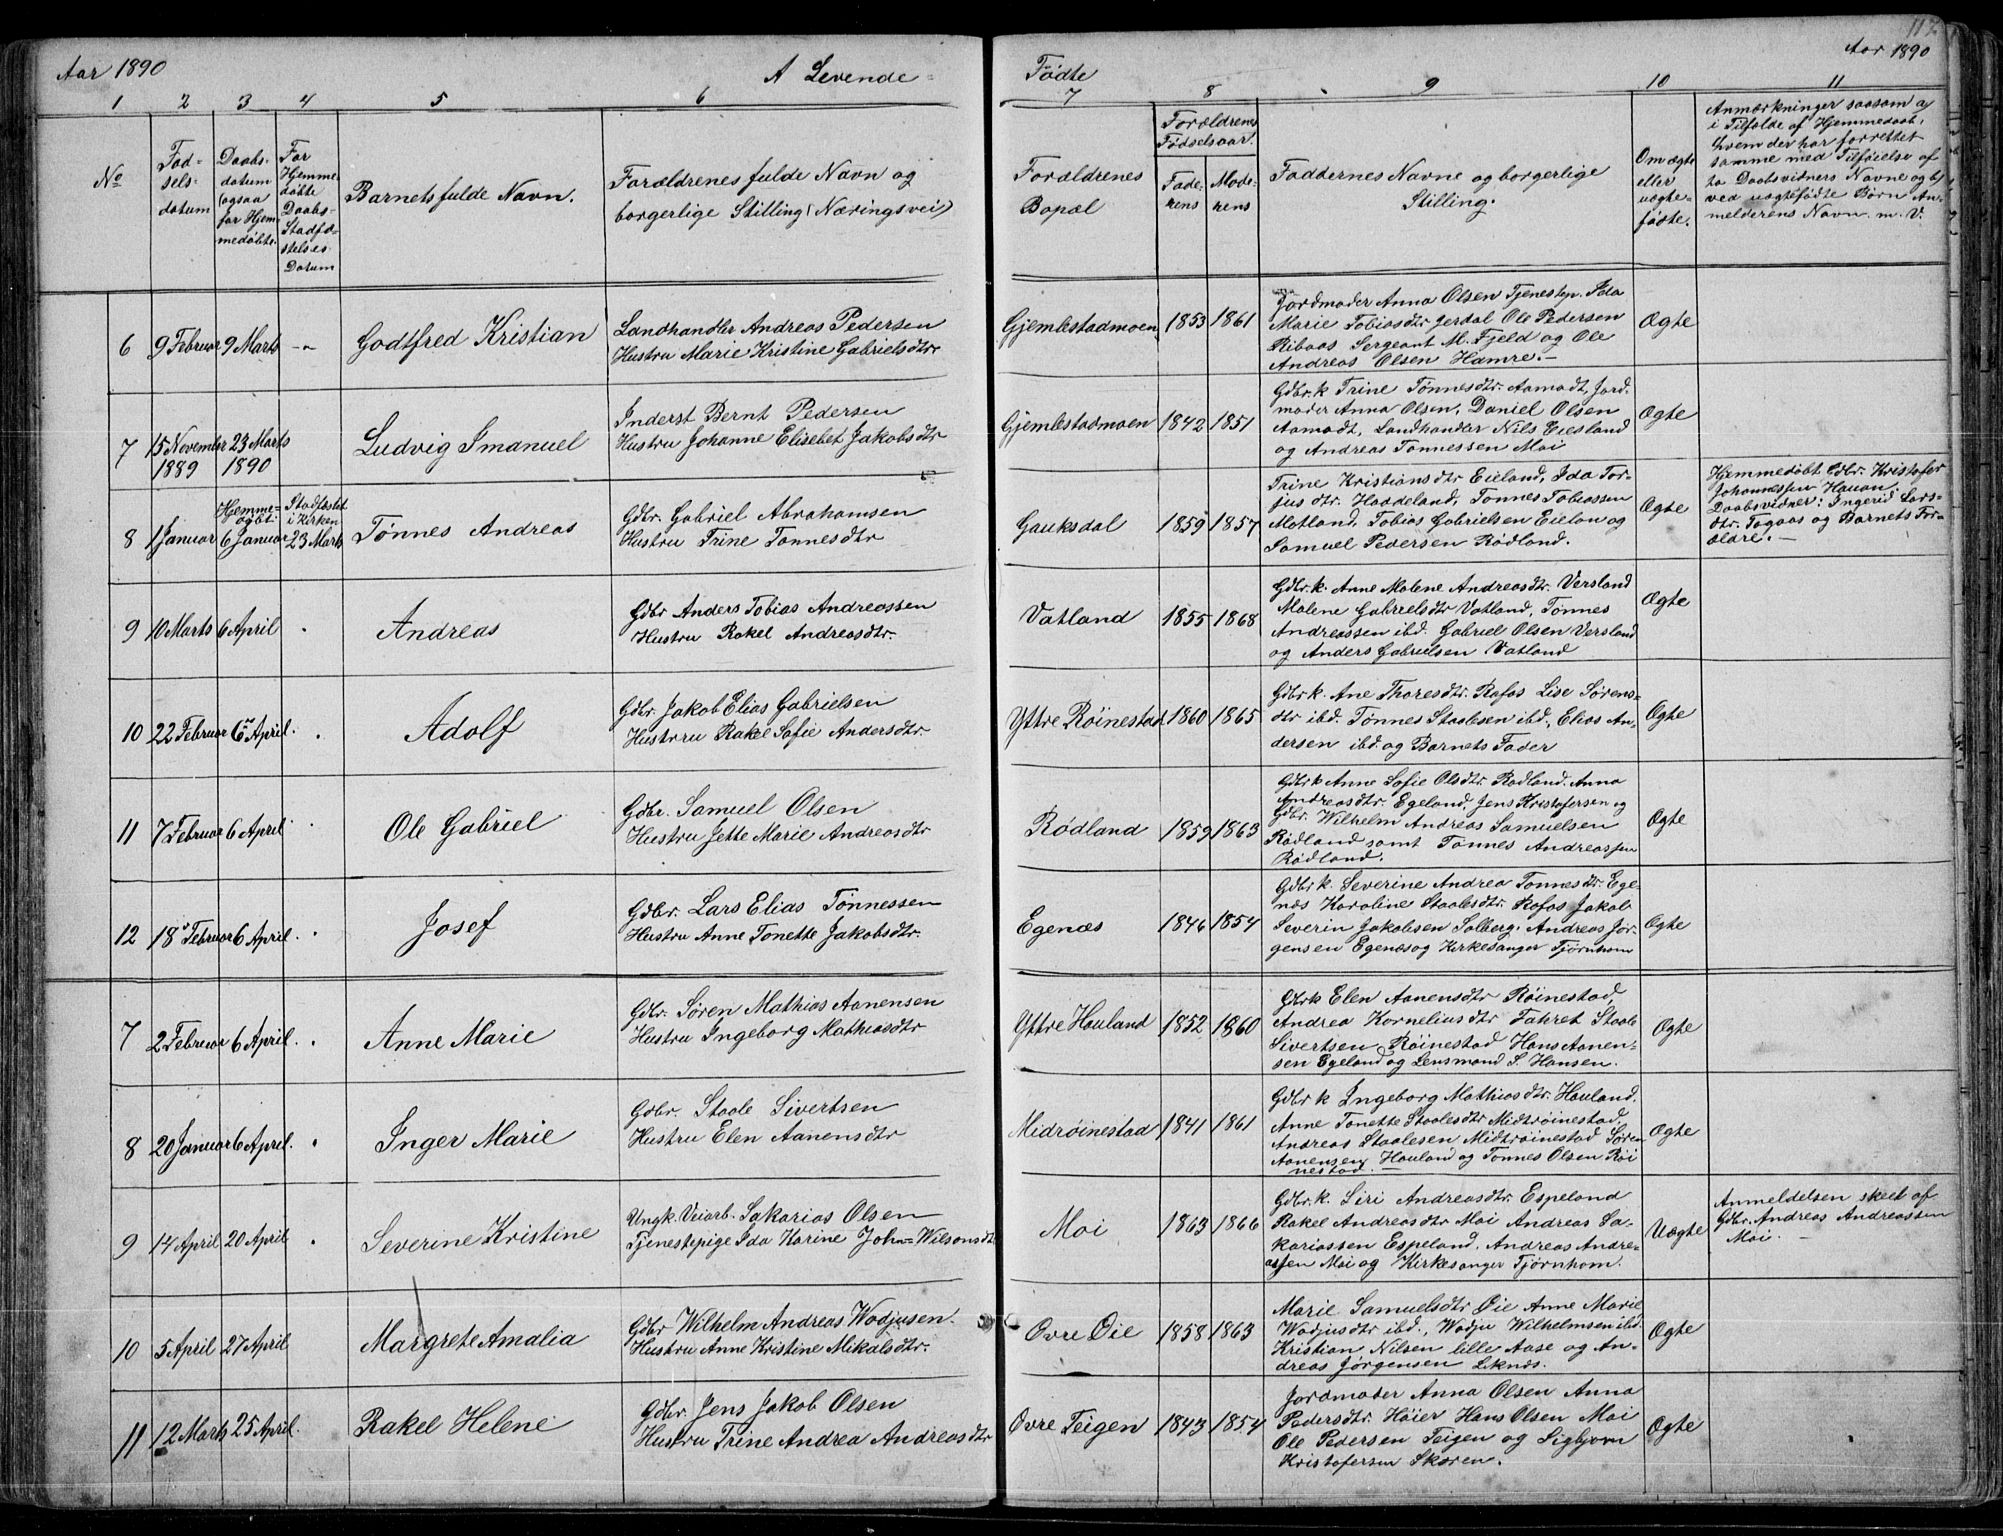 112
Aar 1890
A Levende
Fødte
Aar 1890
1 2 3 4 5 6 7 8 9 10 11
No
Fød-
sels-
datum
Daabs-
datum
(ogsaa
for Hjem-
medøbte.
For
Hjemme-
døbte
Daabs-
Stadfæ-
stelses
Datum
Barnets fulde Navn.
Forældrenes fulde Navn og
borgerlige Stilling (Næringsvei)
Forældrenes
Bopæl
Forældrenes
Fødselsaar.
Fade-
rens
Mode-
rens
Faddernes Navne og borgerlige
Stilling.
Om ægte
eller
uægte-
fødte.
Anmærkninger saasom a)
i Tilfælde af Hjemmedaab,
hvem der har forrettet
samme med Tilføielse af
to Daabsvidners Navne og b)
ved uægtefødte Børn An-
melderens Navn. m. V.
6 9 Februar 9 Marts -"-
Godtfred Kristian
Landhandler Andreas Pedersen
Hustru Marie Kristine Gabrielsdtr
Gjemlestadmoen 1853 1861
Jordmoder Anna Olsen Tjenestep. Ida
Marie Tobiasdtr Jerdal Ole Pedersen
Ribaas Sergeant M. Fjeld og Ole
Andreas Olsen Hamre.-
Ægte
7 15 November 23 Marts
1889 1890
Ludvig Imanuel
Inderst Bernt Pedersen
Hustru Johanne Elisebet Jakobsdtr
Gjemlestadmoen 1842 1851
Gdbr.k Trine Tønnesdtr. Aamodt, Jord-
moder Anna Olsen, Daniel Olsen
Aamodt, Landhandler Nils Eiesland
og Andreas Tønnessen Moi
Ægte
8 1 Januar
Hjemme-
døbt.
6 Januar
Stadfæstet
i Kirken
23 Marts
Tønnes Andreas
Gdbr. Gabriel Abrahamsen
Hustru Trine Tønnesdtr
Gauksdal 1859 1857
Trine Kristiansdtr Eieland, Ida Tor-
jusdtr. Haddeland, Tønnes Tobiassen
Motland. Tobias Gabrielsen Eielan og
Samuel Pedersen Rødland.
Ægte
Hjemmedøbt Gdbr. Kristofer
Johannessen Hauan.
Daabsvidner: Ingerid Lars-
dtr. Fogaas og Barnets For-
ældre.-
9 10 Marts 6 April "
Andreas
Gdbr Anders Tobias Andreassen
Hustru Rakel Andreasdtr.
Vatland 1855 1868
Gdbr.k. Anne Malene Andreasdtr. Versland
Malene Gabrielsdtr Vatland, Tønnes
Andreassen ibd. Gabriel Olsen Versland
og Anders Gabrielsen Vatland
Ægte
10 22 Februar 6 April. "
Adolf
Gdbr. Jakob Elias Gabrielsen
Hustru Rakel Sofie Andersdtr
Yttre Røinestad 1860 1865
Gdbr k. Ane Thoresdtr. Rafos Lise Sørens-
dtr ibd. Tønnes Staalesen ibd, Elias An-
dersen ibd. og Barnets Fader
Ægte
11 7 Februar 6 April "
Ole Gabriel
Gdbr. Samuel Olsen
Hustru Jette Marie Andreasdtr
Rødland 1859 1863
Gdbr k Anne Sofie Olsdtr. Rødland. Anna
Andreasdtr. Egeland, Jens Kristofersen og
Gdbr. Wilhelm Andreas Samuelsen
Rødland samt Tønnes Andreassen
Rødland.
Ægte
12 18 Februar 6 April. "
Josef
Gdbr. Lars Elias Tønnessen
Hustru Anne Tonette Jakobsdtr.
Egenæs 1846 1854
Gdbr k. Severine Andrea Tønnesdtr. Ege-
næs Karoline Staalesdtr. Rafos Jakob
Severin Jakobsen Solberg. Andreas Jør-
gensen Egenæs og Kirkesanger Tjørnhom
Ægte
7 2 Februar 6 April. "
Anne Marie
Gdbr. Søren Mathias Aanensen
Hustru Ingeborg Mathiasdtr
Yttre Hauland 1852 1860
Gdbr k Elen Aanensdtr Røinestad,
Andrea Korneliusdtr Fahret Staale
Sivertsen Røinestad Hans Aanen-
sen Egeland og Lensmand S. Hansen.
Ægte
8 20 Januar 6 April. "
Inger Marie
Gdbr. Staale Sivertsen
Hustru Elen Aanensdtr
Midrøinestad 1841 1861
Gdbr k Ingeborg Mathiasdtr. Hauland.
Anne Tonette Staalesdtr Midtrøinestad,
Andreas Staalesen Midtrøinestad Søren
Aanensen Hauland og Tønnes Olsen Røi
nestad.
Ægte
9 14 April 20 April. "
Severine Kristine
Ungk. Veiarb. Sakarias Olsen
Tjenestepige Ida Karine John-Wilsonsdtr
Moi 1863 1866
Gdbr.k. Siri Andreasdtr. Espeland
Rakel Andreasdtr Moi Andreas Sa-
kariassen Espeland. Andreas Andre-
assen Moi og Kirkesanger Tjørnhom.
Uægte
Anmeldelsen skeet af
Gdbr. Andreas Andreassen
Moi.-
10 5 April 27 April
Margrete Amalia
Gdbr Wilhelm Andreas Wodjusen.
Hustru Anne Kristine Mikalsdtr.
Øvre Øie 1858 1863
Marie Samuelsdtr Øie Anne Marie
Wodjusdtr ibd., Wodju Wilhelmsen ibd.
Kristian Nilsen lille Aase og An-
dreas Jørgensen Liknæs.
Ægte
11 12 Marts 25 April.
Rakel Helene
Gdbr. Jens Jakob Olsen
Hustru Trine Andrea Andreasdtr
Øvre Teigen 1843 1854
Jordmoder Anna Olsen Anna
Pedersdtr. Høier Hans Olsen Moi
Ole Pedersen Teigen og Sigbjørn
Kristofersen Skaren.
Ægte